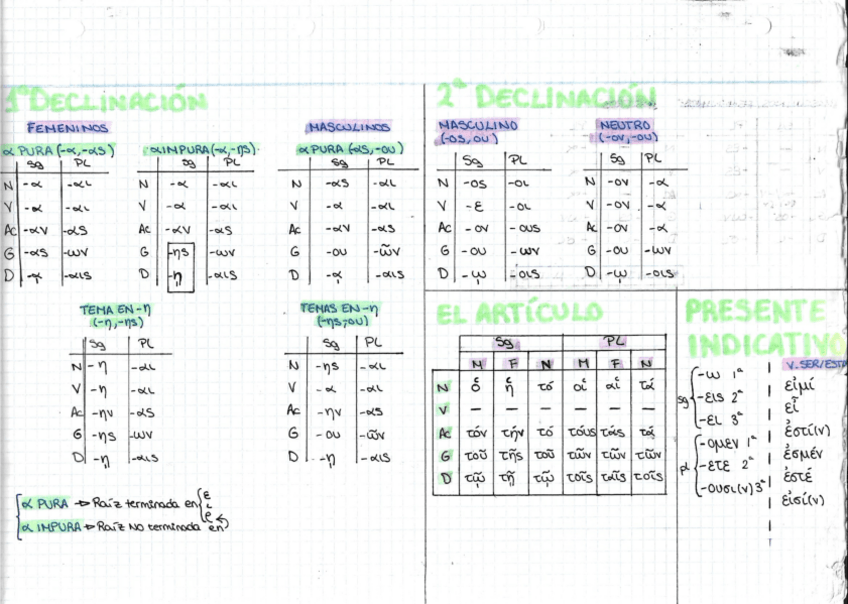 1ª DECLINACIÓN
FEMENINOS
α PURA (-α, -αS)
Sg PL
N -α -αι
V -α -αι
Ac -αν -αS
G -αS -ων
D -ᾳ -αιS
α IMPURA (-α, -ηS)
Sg PL
N -α -αι
V -α -αι
Ac -αν -αS
G -ηS -ων
D -ῃ -αιS
MASCULINOS
α PURA (-αS, -ου)
Sg PL
N -αS -αι
V -α -αι
Ac -αν -αS
G -ου -ῶν
D -ᾳ -αιS
TEMA EN -η
(-η, -ηS)
Sg PL
N -η -αι
V -η -αι
Ac -ην -αS
G -ηS -ων
D -η -αιS
TEMAS EN -η
(-ηS, -ου)
Sg PL
N -ηS -αι
V -α -αι
Ac -ην -αS
G -ου -ῶν
D -η -αιS
α PURA → Raíz terminada en { ε ι ρ
α IMPURA → Raíz NO terminada en
2ª DECLINACIÓN
MASCULINO
(-OS, OU)
Sg PL
N -os -οι
V -ε -οι
Ac -ον -ουs
G -ου -ων
D -ῳ -οιs
NEUTRO
(-ον, -ου)
Sg PL
N -ον -α
V -ον -α
Ac -ον -α
G -ου -ων
D -ῳ -οιs
EL ARTÍCULO
Sg PL
M F N M F N
N ὁ ἡ τό οἱ αἱ τά
V — — — — — —
Ac τόν τήν τό τούς τάς τά
G τοῦ τῆς τοῦ τῶν τῶν τῶν
D τῷ τῇ τῷ τοῖς ταῖς τοῖς
PRESENTE
INDICATIVO
sg { -ω 1ª
-ειs 2ª
-ει 3ª
pl { -ομεν 1ª
-ετε 2ª
-ουσι(ν) 3ª
V. SER/ESTA
εἰμί
εἶ
ἐστί(ν)
ἐσμέν
ἐστέ
εἰσί(ν)